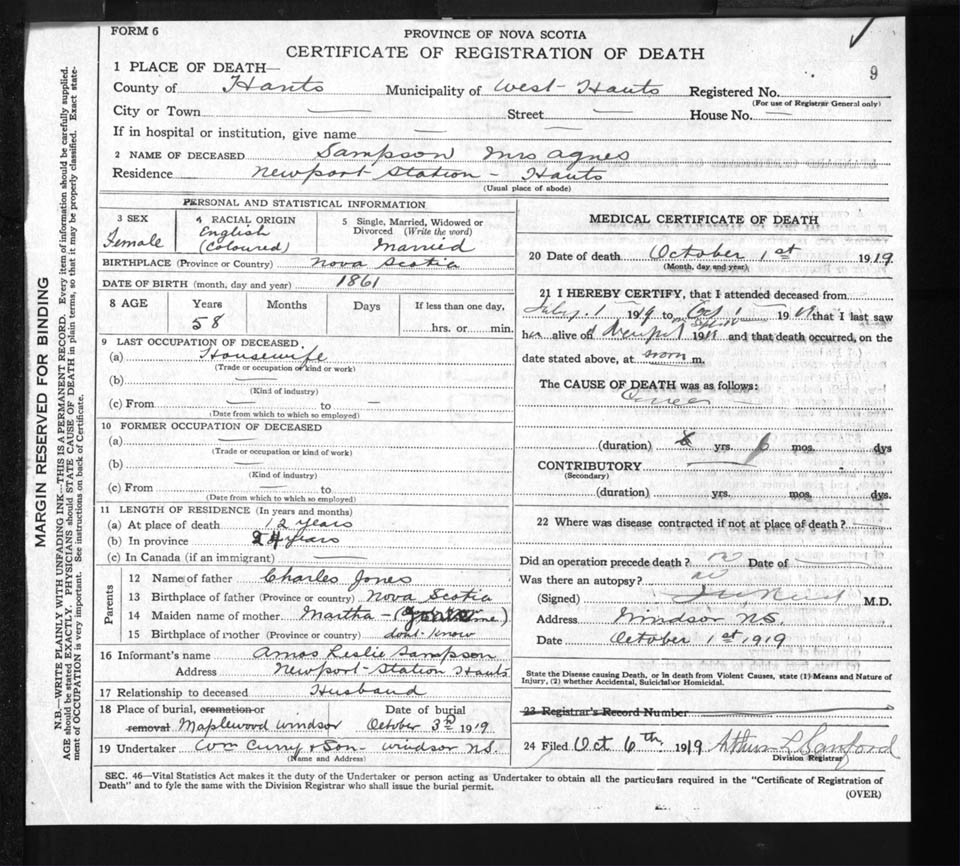 FORM 6
PROVINCE OF NOVA SCOTIA
CERTIFICATE OF REGISTRATION OF DEATH
9
1 PLACE OF DEATH—
County of Hants Municipality of West-Hants Registered No.
(For use of Registrar General only)
City or Town — Street — House No. —
If in hospital or institution, give name —
2 NAME OF DECEASED Sampson Mrs Agnes
Residence Newport Station - Hants
(Usual place of abode)
MARGIN RESERVED FOR BINDING
N.B.—WRITE PLAINLY WITH UNFADING INK—THIS IS A PERMANENT RECORD. Every item of information should be carefully supplied.
AGE should be stated EXACTLY. PHYSICIANS should STATE CAUSE OF DEATH in plain terms, so that it may be properly classified. Exact state-
ment of OCCUPATION is very important. See instructions on back of Certificate.
PERSONAL AND STATISTICAL INFORMATION
3 SEX
Female
4 RACIAL ORIGIN
English
(Coloured)
5 Single, Married, Widowed or
Divorced (Write the word)
Married
BIRTHPLACE (Province or Country) Nova Scotia
DATE OF BIRTH (month, day and year) 1861
8 AGE Years Months Days If less than one day,
58 hrs. or min.
9 LAST OCCUPATION OF DECEASED
(a) Housewife
(Trade or occupation or kind or work)
(b) —
(Kind of industry)
(c) From — to —
(Date from which to which so employed)
10 FORMER OCCUPATION OF DECEASED
(a) —
(Trade or occupation or kind of work)
(b) —
(Kind of industry)
(c) From — to
(Date from which to which so employed)
11 LENGTH OF RESIDENCE (In years and months)
(a) At place of death 12 years
(b) In province years
(c) In Canada (if an immigrant) —
Parents
12 Name of father Charles Jones
13 Birthplace of father (Province or country) Nova Scotia
14 Maiden name of mother Martha - (
15 Birthplace of mother (Province or country) dont-know
16 Informant's name Amos Leslie Sampson
Address Newport-Station Hants
17 Relationship to deceased Husband
18 Place of burial, cremation or
removal Maplewood Windsor
Date of burial
October 3rd 1919
19 Undertaker Wm Curry & Son - Windsor N.S.
(Name and Address)
MEDICAL CERTIFICATE OF DEATH
20 Date of death October 1st 1919
(Month, day and year)
21 I HEREBY CERTIFY, that I attended deceased from
1 1919 to Oct 1 19 that I last saw
her alive on 19 and that death occurred, on the
date stated above, at noon m.
The CAUSE OF DEATH was as follows:
Cancer
(duration) yrs. 6 mos. dys
CONTRIBUTORY —
(Secondary)
(duration) yrs. mos. dys.
22 Where was disease contracted if not at place of death? —
Did an operation precede death? no Date of —
Was there an autopsy? no
(Signed) M.D.
Address Windsor N.S.
Date October 1st 1919
State the Disease causing Death, or in death from Violent Causes, state (1) Means and Nature of
Injury, (2) whether Accidental, Suicidal or Homicidal.
23 Registrar's Record Number
24 Filed Oct 6th 1919 Arthur L Sanford
Division Registrar
SEC. 46—Vital Statistics Act makes it the duty of the Undertaker or person acting as Undertaker to obtain all the particulars required in the "Certificate of Registration of
Death" and to fyle the same with the Division Registrar who shall issue the burial permit.
(OVER)